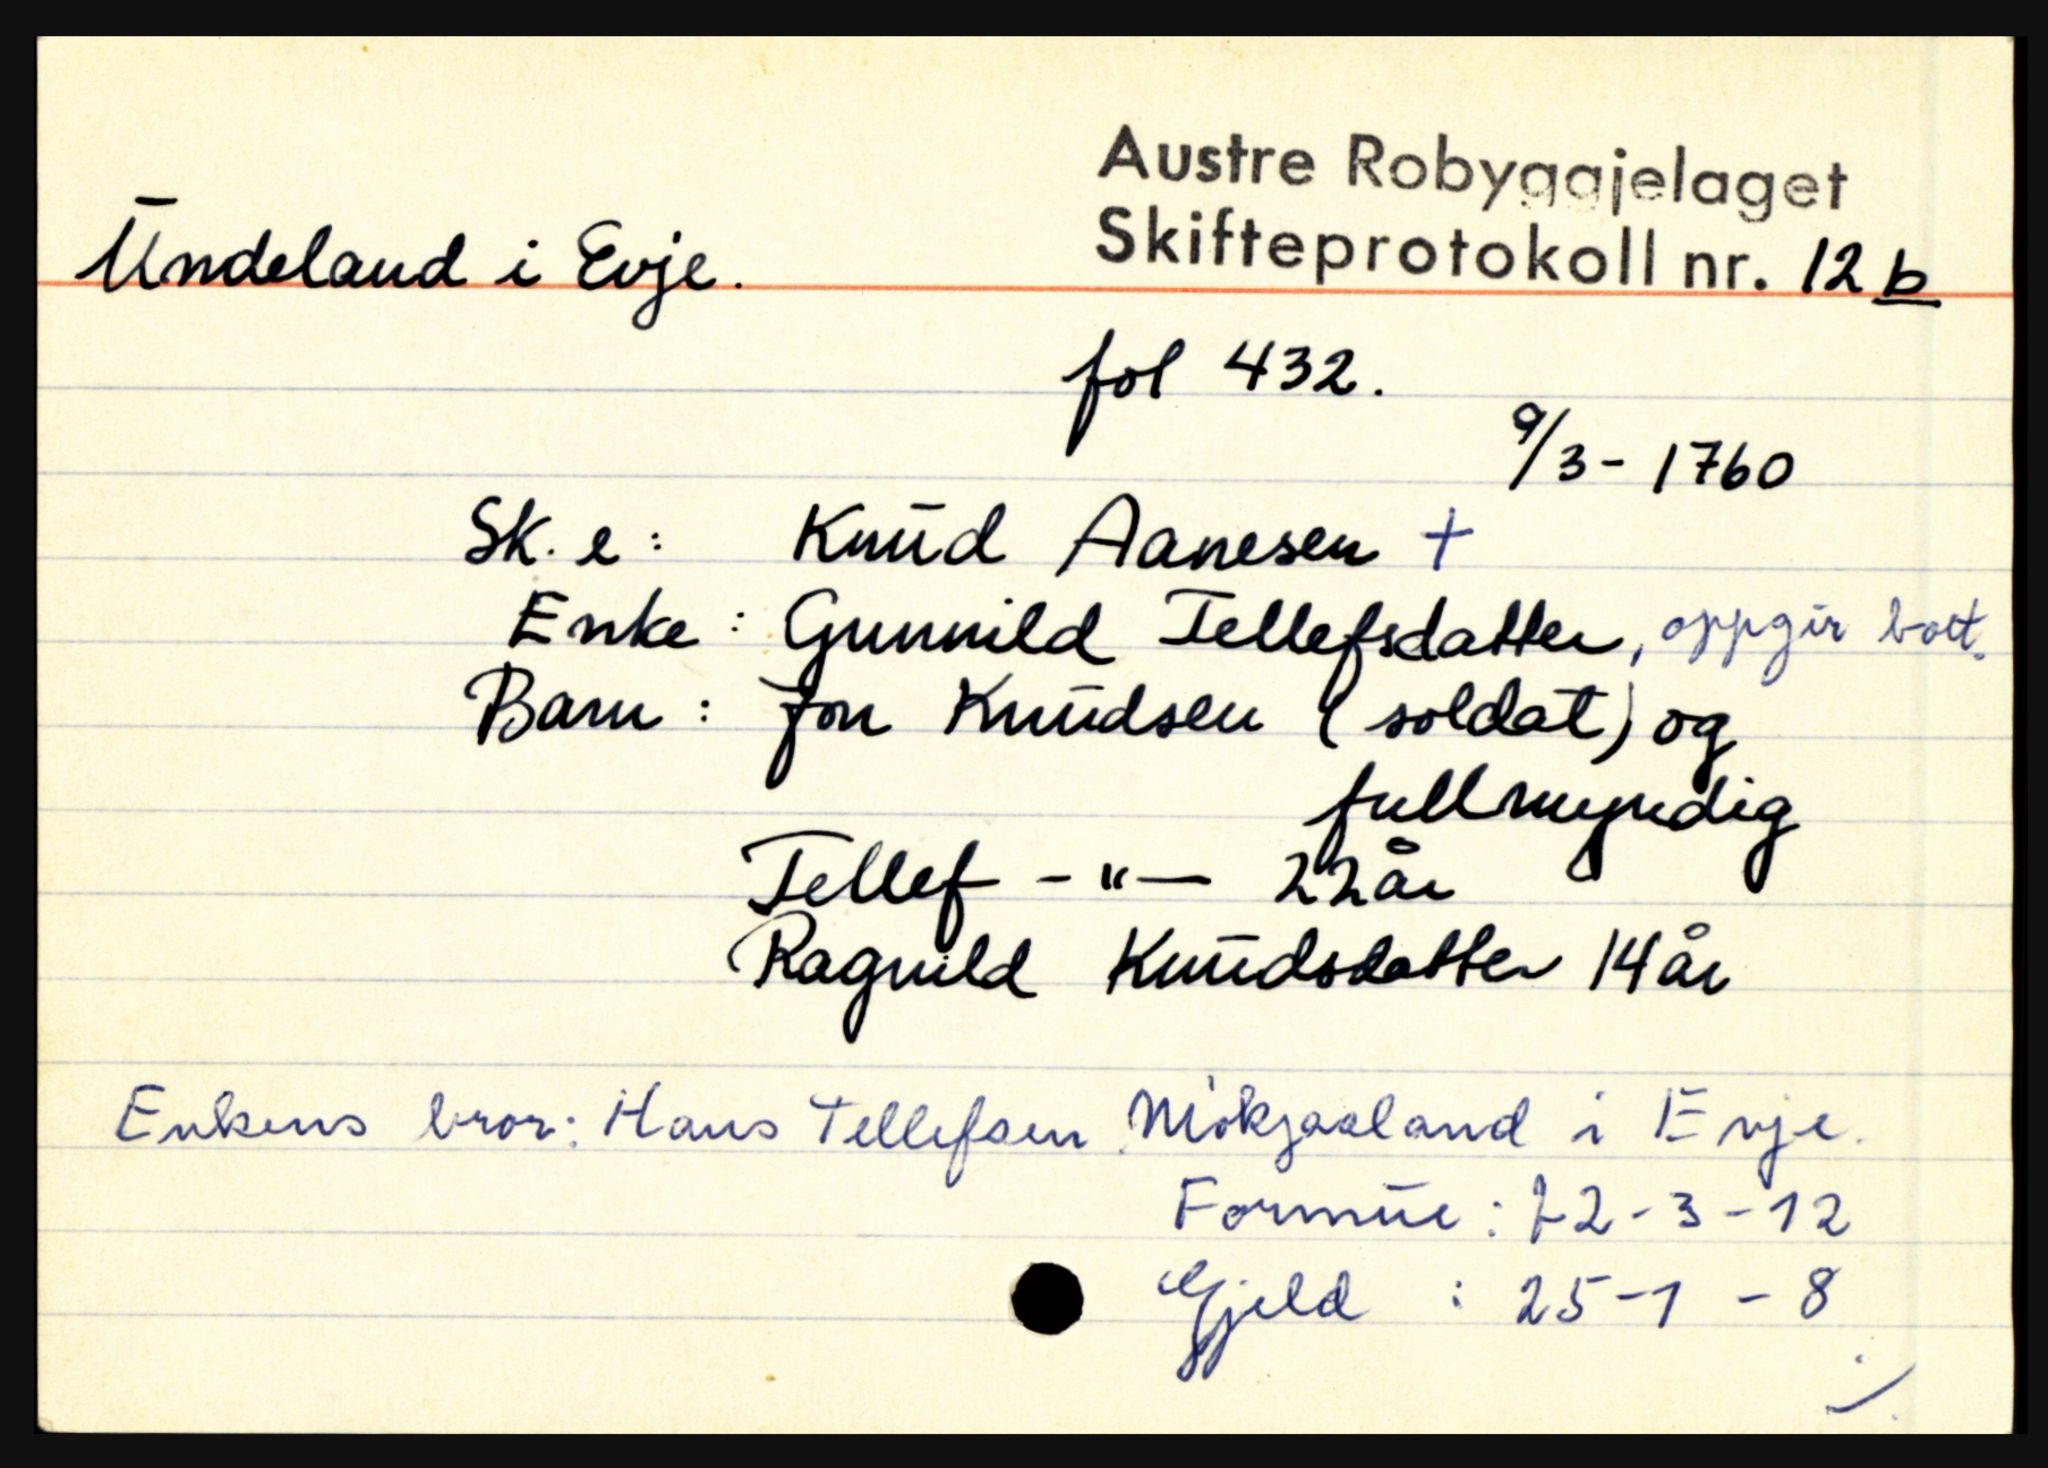 Austre Robyggjelaget
Undeland i Evje. Skifteprotokoll nr. 12 b
fol 432.
9/3 - 1760
Sk. e: Knud Aanesen +
Enke: Gunnild Tellefsdatter, oppgir boet.
Barn: Jon Knudsen (soldat) og
fullmyndig
Tellef - " - 22 år
Ragnild Knudsdatter 14 år
Enkens bror: Hans Tellefsen i Evje.
Formue: 22 - 3 - 12
Gjeld : 25 - 1 - 8